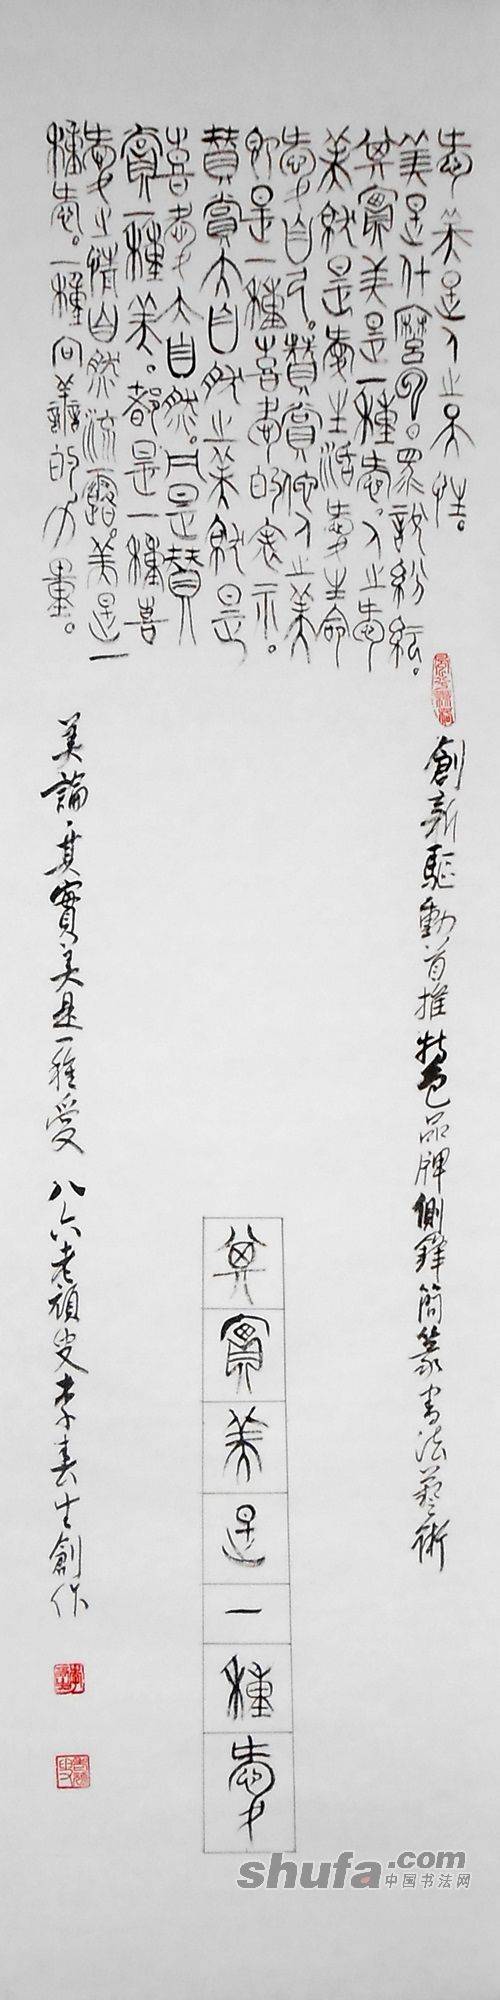 愛美是人之天性。
美是什麼呢。眾說紛紜。
其實美是一種愛。人之愛
美就是愛生活愛生命
愛自己。贊賞他人之美
即是一種喜愛的表示。
贊賞大自然之美就是
喜愛大自然。凡是贊
賞一種美。都是一種喜
愛之情自然流露。美是一
種愛。一種向善的力量。
創新驅動首推特色品牌側鋒簡篆書法藝術
其實美是一種愛
美論·其實美是一種愛 八六老頑叟李春生創作
shufa.com
中国书法网